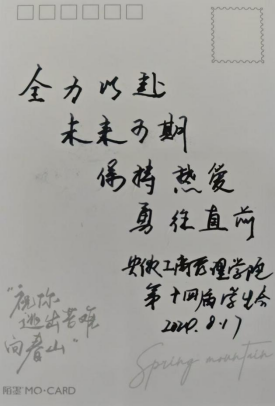 全力以赴
未来可期
保持热爱
勇往直前
安徽工商管理学院
第十四届学生会
2020.8.17
"祝你
逃出苦难
向春山"
Spring mountain
陌屋 MO-CARD